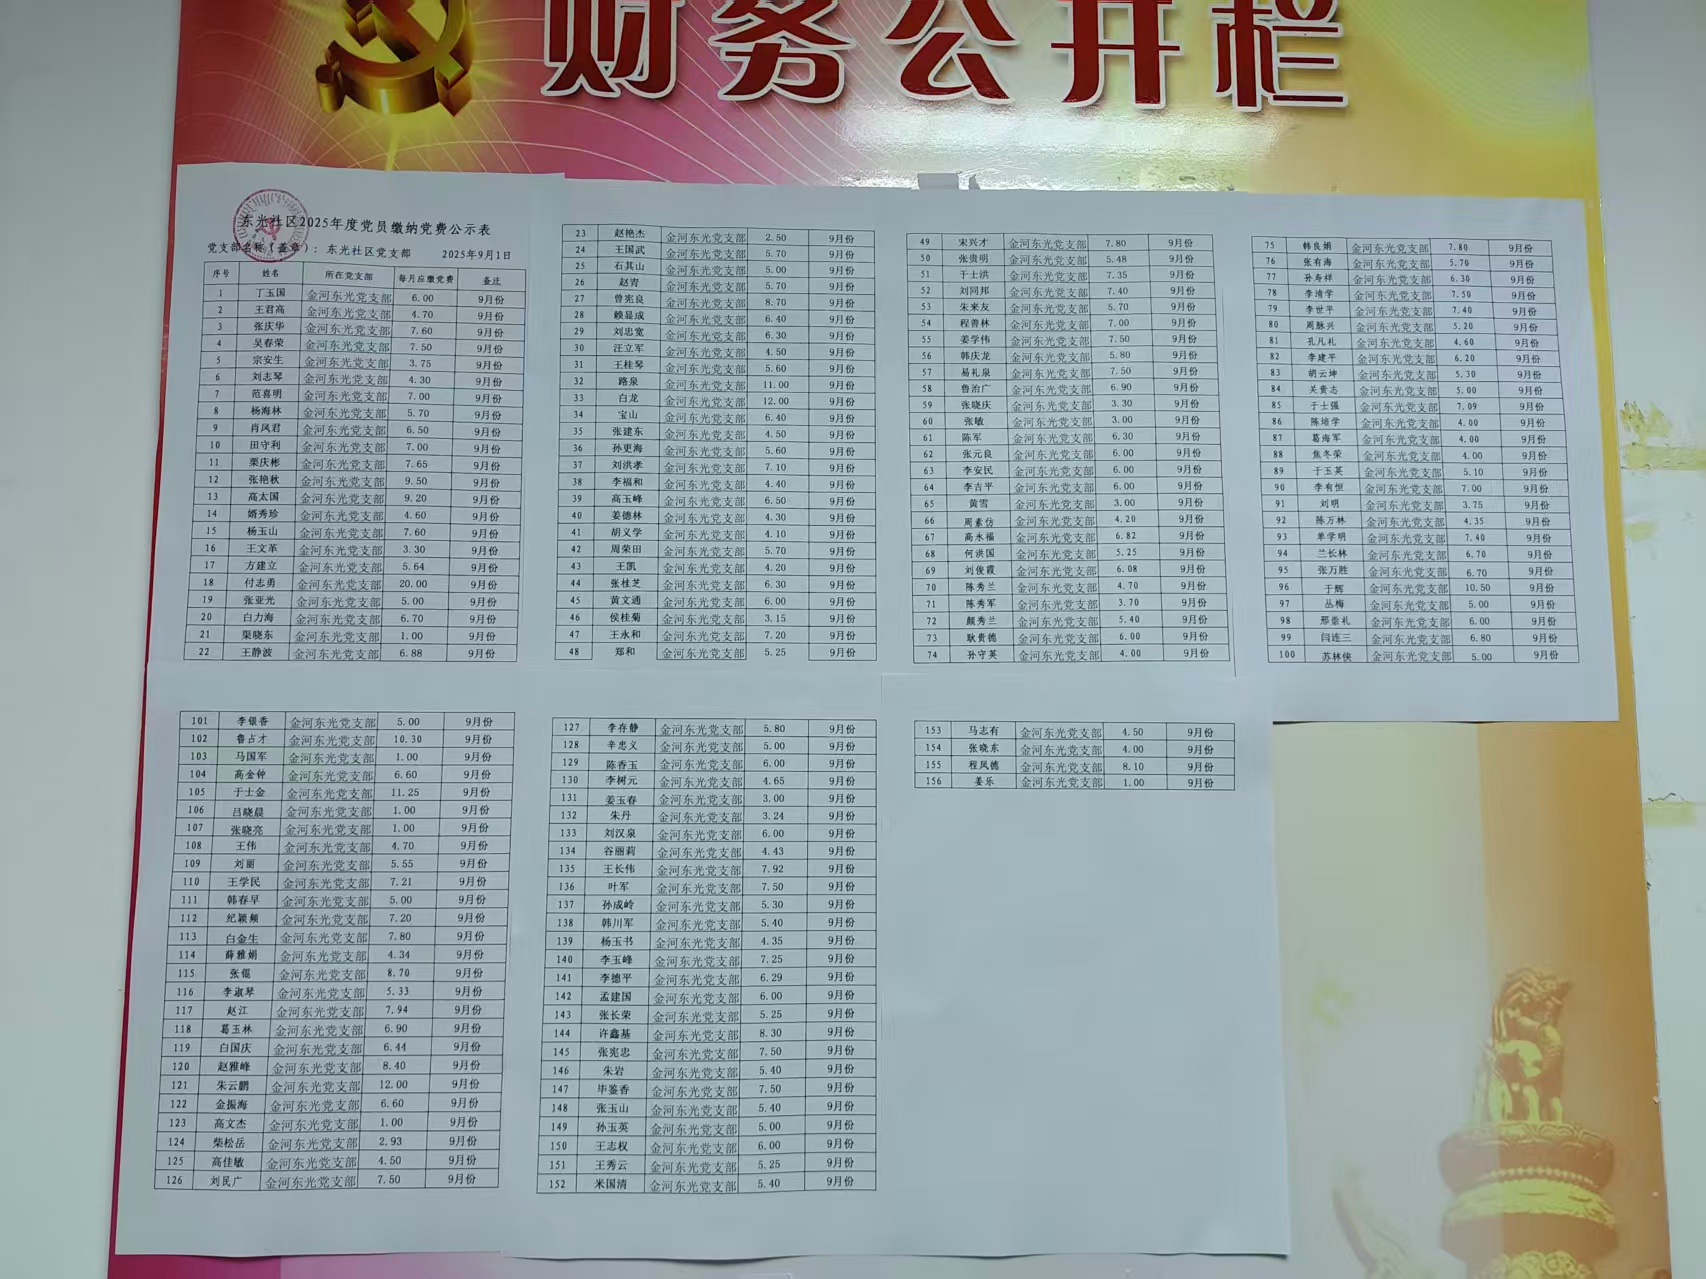 财务公开栏
东光社区2025年度党员缴纳党费公示表
党支部名称（盖章）：东光社区党支部 2025年9月1日
序号 姓名 所在党支部 每月应缴党费 备注
1 丁玉国 金河东光党支部 6.00 9月份
2 王君高 金河东光党支部 4.70 9月份
3 张庆华 金河东光党支部 7.60 9月份
4 吴春荣 金河东光党支部 7.50 9月份
5 宗安生 金河东光党支部 3.75 9月份
6 刘志琴 金河东光党支部 4.30 9月份
7 范喜明 金河东光党支部 7.00 9月份
8 杨海林 金河东光党支部 5.70 9月份
9 肖凤君 金河东光党支部 6.50 9月份
10 田守利 金河东光党支部 7.00 9月份
11 栗庆彬 金河东光党支部 7.65 9月份
12 张艳秋 金河东光党支部 9.50 9月份
13 高太国 金河东光党支部 9.20 9月份
14 婿秀珍 金河东光党支部 4.60 9月份
15 杨玉山 金河东光党支部 7.60 9月份
16 王文革 金河东光党支部 3.30 9月份
17 方建立 金河东光党支部 5.64 9月份
18 付志勇 金河东光党支部 20.00 9月份
19 张亚光 金河东光党支部 5.00 9月份
20 白力海 金河东光党支部 6.70 9月份
21 渠晓东 金河东光党支部 1.00 9月份
22 王静波 金河东光党支部 6.88 9月份
23 赵艳杰 金河东光党支部 2.50 9月份
24 王国武 金河东光党支部 5.70 9月份
25 石其山 金河东光党支部 5.00 9月份
26 赵青 金河东光党支部 5.70 9月份
27 曾宪良 金河东光党支部 8.70 9月份
28 赖显成 金河东光党支部 6.40 9月份
29 刘忠宽 金河东光党支部 6.30 9月份
30 汪立军 金河东光党支部 4.50 9月份
31 王桂琴 金河东光党支部 5.60 9月份
32 路泉 金河东光党支部 11.00 9月份
33 白龙 金河东光党支部 12.00 9月份
34 宝山 金河东光党支部 6.40 9月份
35 张建东 金河东光党支部 4.50 9月份
36 孙更海 金河东光党支部 5.60 9月份
37 刘洪孝 金河东光党支部 7.10 9月份
38 李福和 金河东光党支部 4.40 9月份
39 高玉峰 金河东光党支部 6.50 9月份
40 姜德林 金河东光党支部 4.30 9月份
41 胡义学 金河东光党支部 4.10 9月份
42 周荣田 金河东光党支部 5.70 9月份
43 王凯 金河东光党支部 4.20 9月份
44 张桂芝 金河东光党支部 6.30 9月份
45 黄文通 金河东光党支部 6.00 9月份
46 侯桂菊 金河东光党支部 3.15 9月份
47 王永和 金河东光党支部 7.20 9月份
48 郑和 金河东光党支部 5.25 9月份
49 宋兴才 金河东光党支部 7.80 9月份
50 张贵明 金河东光党支部 5.48 9月份
51 于士洪 金河东光党支部 7.35 9月份
52 刘同邦 金河东光党支部 7.40 9月份
53 朱来友 金河东光党支部 5.70 9月份
54 程善林 金河东光党支部 7.00 9月份
55 姜学伟 金河东光党支部 7.50 9月份
56 韩庆龙 金河东光党支部 5.80 9月份
57 易礼泉 金河东光党支部 7.50 9月份
58 鲁治广 金河东光党支部 6.90 9月份
59 张晓庆 金河东光党支部 3.30 9月份
60 张敏 金河东光党支部 3.00 9月份
61 陈军 金河东光党支部 6.30 9月份
62 张元良 金河东光党支部 6.00 9月份
63 李安民 金河东光党支部 6.00 9月份
64 李吉平 金河东光党支部 6.00 9月份
65 黄雪 金河东光党支部 3.00 9月份
66 周素仿 金河东光党支部 4.20 9月份
67 高永福 金河东光党支部 6.82 9月份
68 何洪国 金河东光党支部 5.25 9月份
69 刘俊霞 金河东光党支部 6.08 9月份
70 陈秀兰 金河东光党支部 4.70 9月份
71 陈秀军 金河东光党支部 3.70 9月份
72 颜秀兰 金河东光党支部 5.40 9月份
73 耿贵德 金河东光党支部 6.00 9月份
74 孙守英 金河东光党支部 4.00 9月份
75 韩良娟 金河东光党支部 7.80 9月份
76 张有海 金河东光党支部 5.70 9月份
77 孙寿祥 金河东光党支部 6.30 9月份
78 李清学 金河东光党支部 7.50 9月份
79 李世平 金河东光党支部 7.40 9月份
80 周脉兴 金河东光党支部 5.20 9月份
81 孔凡礼 金河东光党支部 4.60 9月份
82 李建平 金河东光党支部 6.20 9月份
83 胡云坤 金河东光党支部 5.30 9月份
84 关贵志 金河东光党支部 5.00 9月份
85 于士强 金河东光党支部 7.09 9月份
86 陈培学 金河东光党支部 4.00 9月份
87 葛海军 金河东光党支部 4.00 9月份
88 焦冬荣 金河东光党支部 4.00 9月份
89 于玉英 金河东光党支部 5.10 9月份
90 李有恒 金河东光党支部 7.00 9月份
91 刘明 金河东光党支部 3.75 9月份
92 陈万林 金河东光党支部 4.35 9月份
93 单学明 金河东光党支部 7.40 9月份
94 兰长林 金河东光党支部 6.70 9月份
95 张万胜 金河东光党支部 6.70 9月份
96 于辉 金河东光党支部 10.50 9月份
97 丛梅 金河东光党支部 5.00 9月份
98 邢崇礼 金河东光党支部 6.00 9月份
99 闫连三 金河东光党支部 6.80 9月份
100 苏林侠 金河东光党支部 5.00 9月份
101 李银香 金河东光党支部 5.00 9月份
102 鲁占才 金河东光党支部 10.30 9月份
103 马国军 金河东光党支部 1.00 9月份
104 高金钟 金河东光党支部 6.60 9月份
105 于士金 金河东光党支部 11.25 9月份
106 吕晓晨 金河东光党支部 1.00 9月份
107 张晓亮 金河东光党支部 1.00 9月份
108 王伟 金河东光党支部 4.70 9月份
109 刘丽 金河东光党支部 5.55 9月份
110 王学民 金河东光党支部 7.21 9月份
111 韩春早 金河东光党支部 5.00 9月份
112 纪颖频 金河东光党支部 7.20 9月份
113 白金生 金河东光党支部 7.80 9月份
114 薛雅娟 金河东光党支部 4.34 9月份
115 张锟 金河东光党支部 8.70 9月份
116 李淑琴 金河东光党支部 5.33 9月份
117 赵江 金河东光党支部 7.94 9月份
118 葛玉林 金河东光党支部 6.90 9月份
119 白国庆 金河东光党支部 6.44 9月份
120 赵雅峰 金河东光党支部 8.40 9月份
121 朱云鹏 金河东光党支部 12.00 9月份
122 金振海 金河东光党支部 6.60 9月份
123 高文杰 金河东光党支部 1.00 9月份
124 柴松岳 金河东光党支部 2.93 9月份
125 高佳敏 金河东光党支部 4.50 9月份
126 刘民广 金河东光党支部 7.50 9月份
127 李存静 金河东光党支部 5.80 9月份
128 辛忠义 金河东光党支部 5.00 9月份
129 陈香玉 金河东光党支部 6.00 9月份
130 李树元 金河东光党支部 4.65 9月份
131 姜玉春 金河东光党支部 3.00 9月份
132 朱丹 金河东光党支部 3.24 9月份
133 刘汉泉 金河东光党支部 6.00 9月份
134 谷丽莉 金河东光党支部 4.43 9月份
135 王长伟 金河东光党支部 7.92 9月份
136 叶军 金河东光党支部 7.50 9月份
137 孙成岭 金河东光党支部 5.30 9月份
138 韩川军 金河东光党支部 5.40 9月份
139 杨玉书 金河东光党支部 4.35 9月份
140 李玉峰 金河东光党支部 7.25 9月份
141 李德平 金河东光党支部 6.29 9月份
142 孟建国 金河东光党支部 6.00 9月份
143 张长荣 金河东光党支部 5.25 9月份
144 许鑫基 金河东光党支部 8.30 9月份
145 张宪忠 金河东光党支部 7.50 9月份
146 朱岩 金河东光党支部 5.40 9月份
147 毕鉴香 金河东光党支部 7.50 9月份
148 张玉山 金河东光党支部 5.40 9月份
149 孙玉英 金河东光党支部 5.00 9月份
150 王志权 金河东光党支部 6.00 9月份
151 王秀云 金河东光党支部 5.25 9月份
152 米国清 金河东光党支部 5.40 9月份
153 马志有 金河东光党支部 4.50 9月份
154 张晓东 金河东光党支部 4.00 9月份
155 程凤德 金河东光党支部 8.10 9月份
156 姜乐 金河东光党支部 1.00 9月份